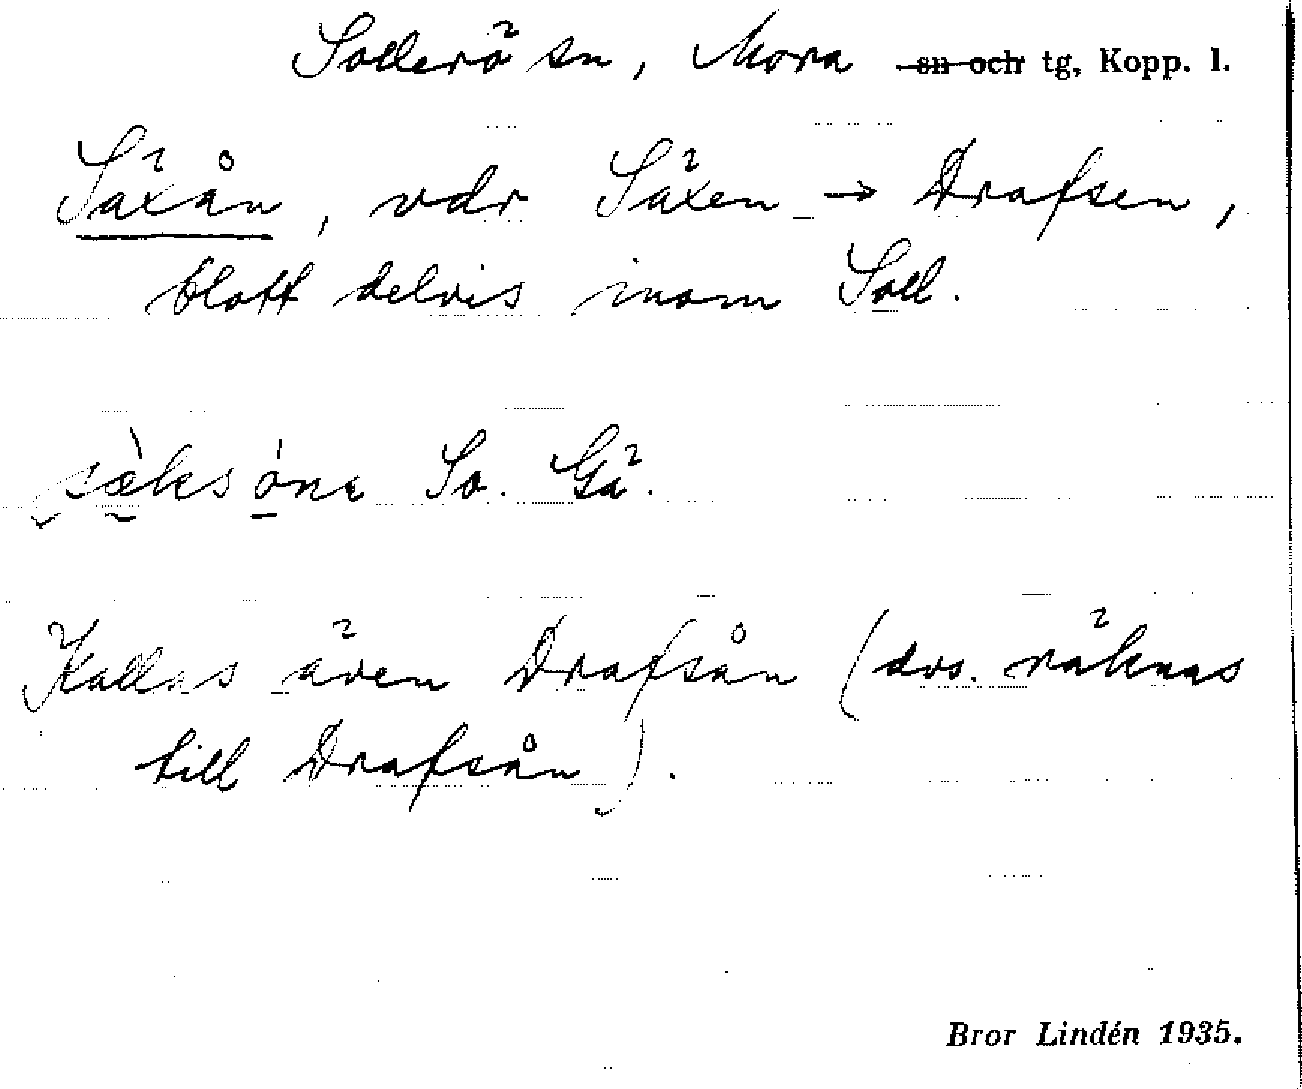 Sollerö sn, Mora sn och tg, Kopp. l.
Säxån, vdr Säxen → Drafsen,
blott delvis inom Soll.
sæ̀ksóna So. Gä.
Kallas även Drafsån (dvs. räknas
till Drafsån).
Bror Lindén 1935.